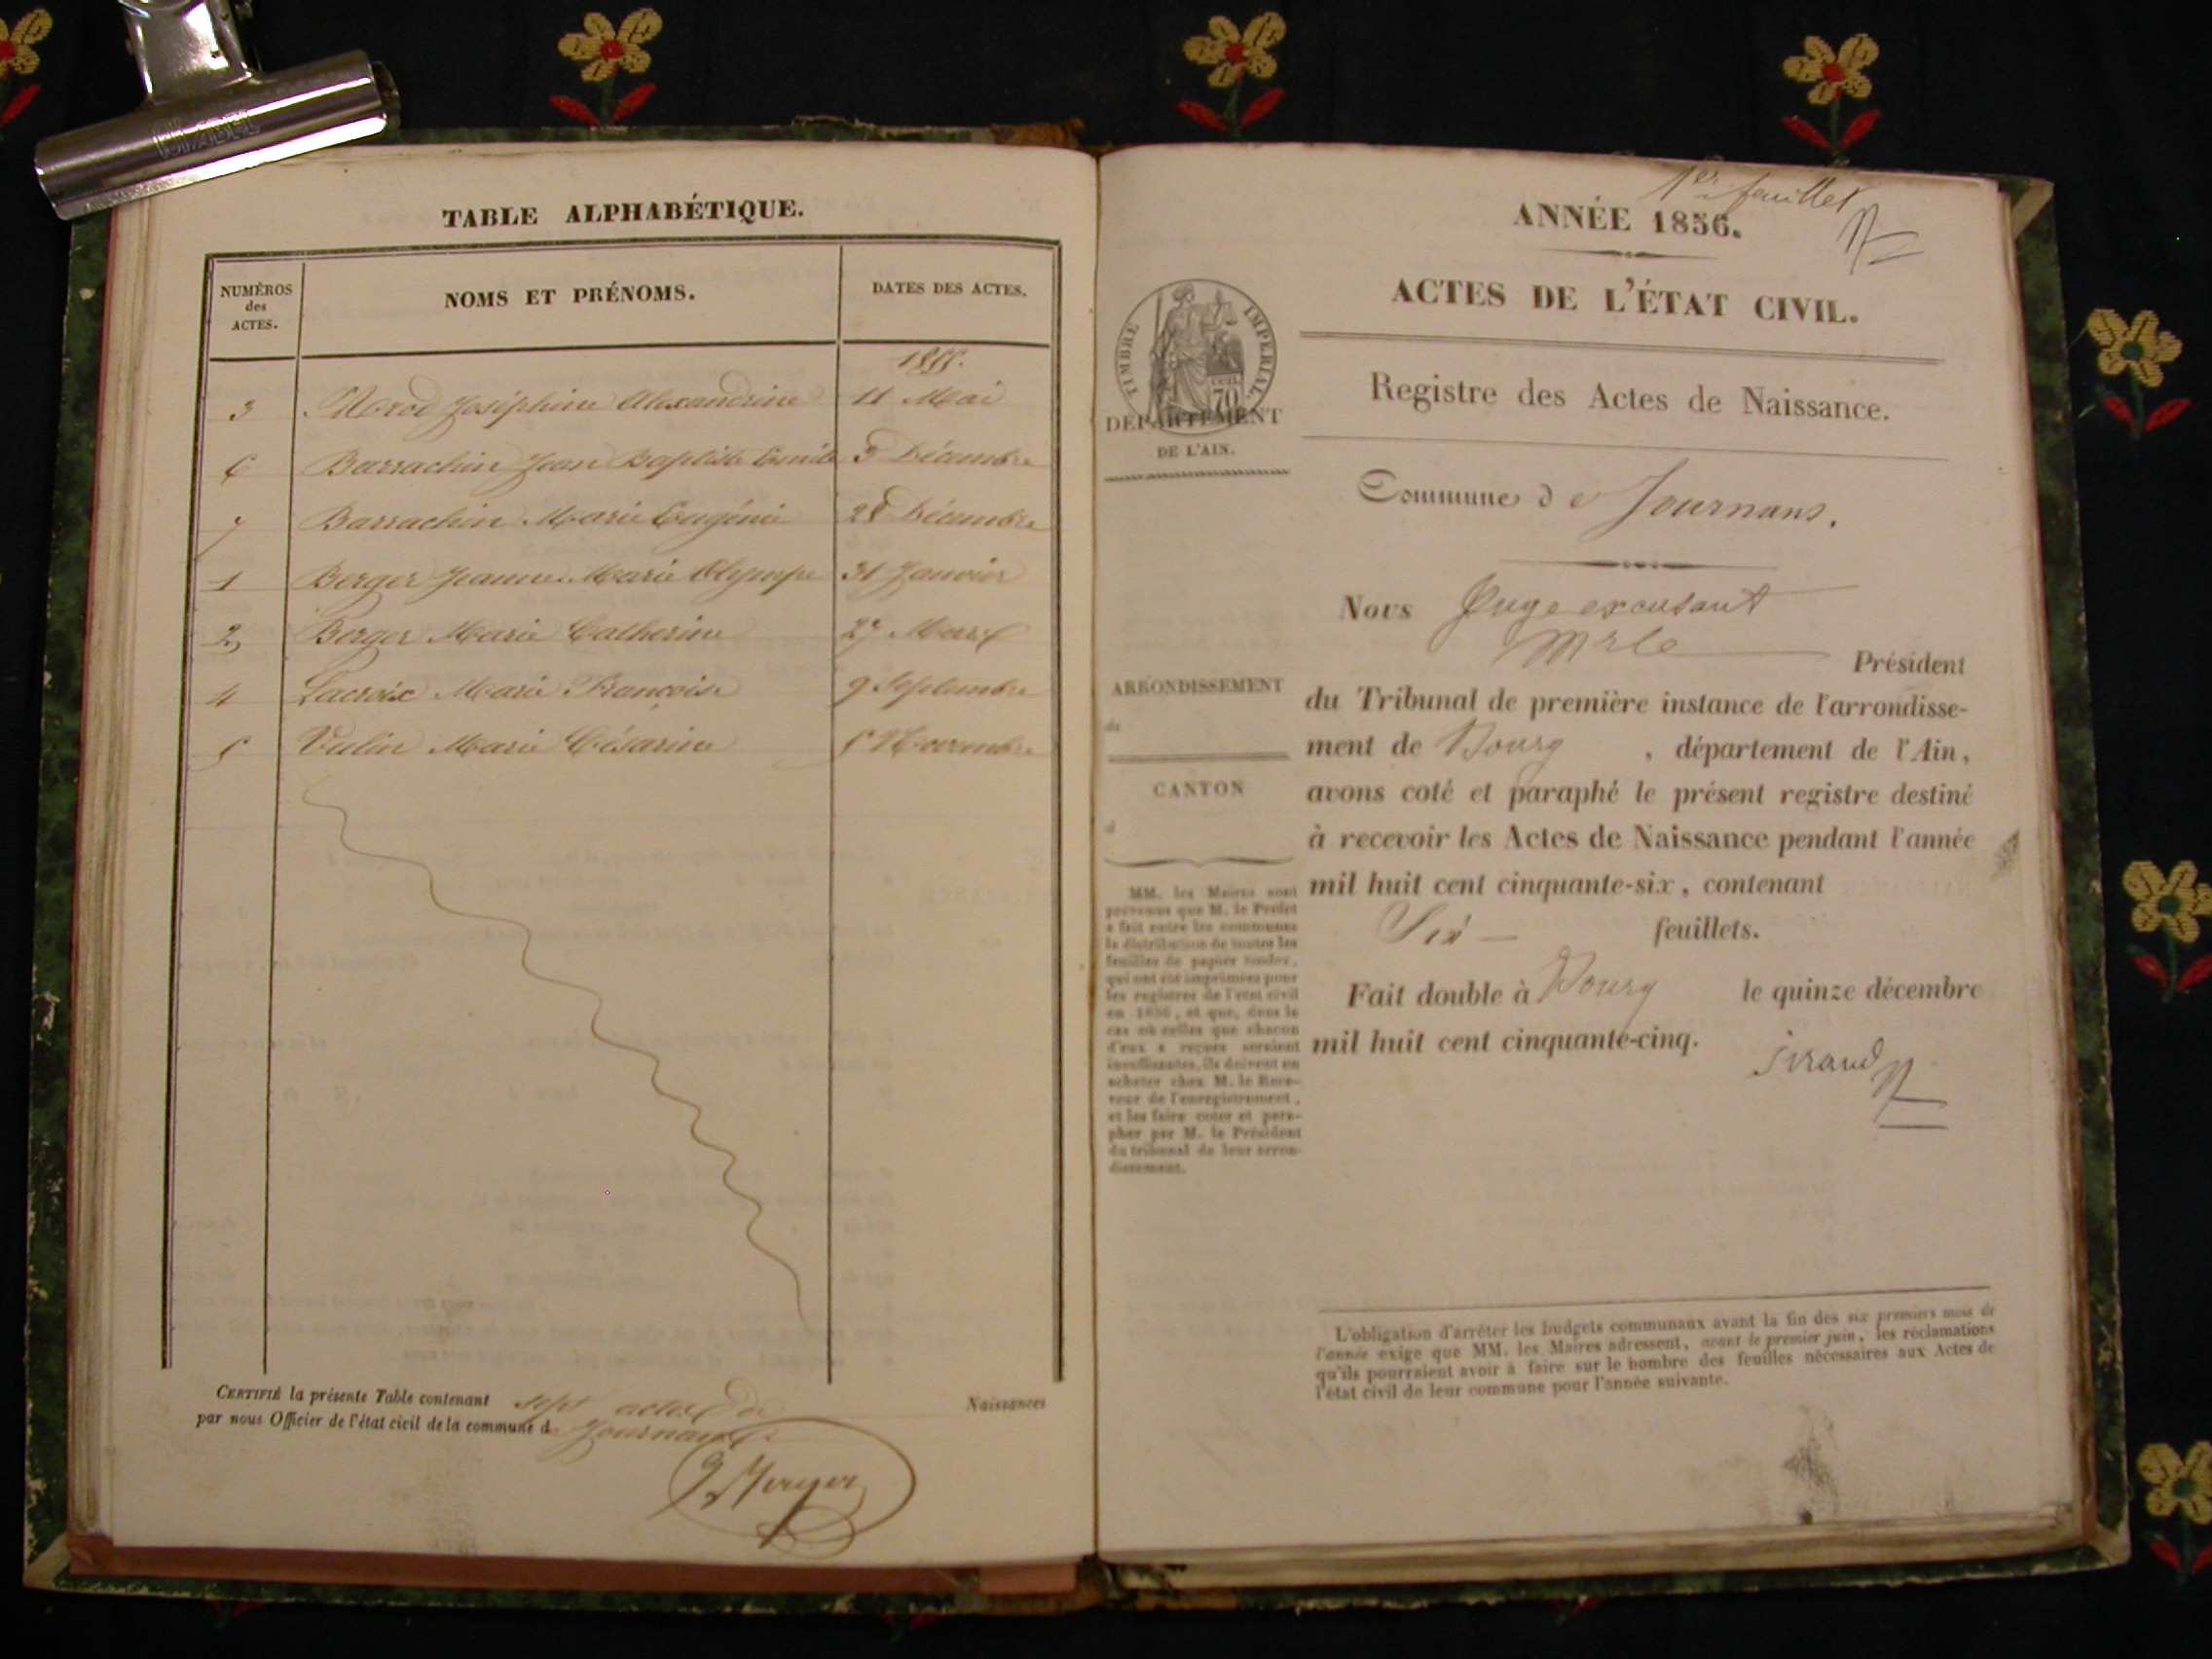 TABLE ALPHABÉTIQUE.
NUMÉROS des ACTES.
NOMS ET PRÉNOMS.
DATES DES ACTES.
1855.
3 Joséphine Alexandrine 11 Mai
6 Barrachin Jean Baptiste Emile 3 Décembre
7 Barrachin Marie Eugénie 28 Décembre
1 Berger Jeanne Marie Olympe 31 Janvier
2 Berger Marie Catherine 27 Mars
4 Lacroix Marie Françoise 9 Septembre
5 Vulin Marie Césarine 5 Novembre
CERTIFIÉ la présente Table contenant sept actes de Naissances
par nous Officier de l'état civil de la commune de Journans
1er feuillet
ANNÉE 1856.
ACTES DE L'ÉTAT CIVIL.
TIMBRE IMPÉRIAL
70
DÉPARTEMENT
DE L'AIN.
Registre des Actes de Naissance.
Commune de Journans.
Nous Juge excusant
Mr le Président
ARRONDISSEMENT
de
du Tribunal de première instance de l'arrondisse-
ment de Bourg, département de l'Ain,
CANTON
d
avons coté et paraphé le présent registre destiné
à recevoir les Actes de Naissance pendant l'année
mil huit cent cinquante-six, contenant
Six feuillets.
Fait double à Bourg le quinze décembre
mil huit cent cinquante-cinq.
MM. les Maires sont
prévenus que M. le Préfet
a fait entre les communes
la distribution de toutes les
feuilles de papier timbré,
qui ont été imprimées pour
les registres de l'état civil
en 1856, et que, dans le
cas où celles que chacun
d'eux a reçues seraient
insuffisantes, ils doivent en
acheter chez M. le Rece-
veur de l'enregistrement,
et les faire coter et para-
pher par M. le Président
du tribunal de leur arron-
dissement.
L'obligation d'arrêter les budgets communaux avant la fin des six premiers mois de
l'année exige que MM. les Maires adressent, avant le premier juin, les réclamations
qu'ils pourraient avoir à faire sur le nombre des feuilles nécessaires aux Actes de
l'état civil de leur commune pour l'année suivante.